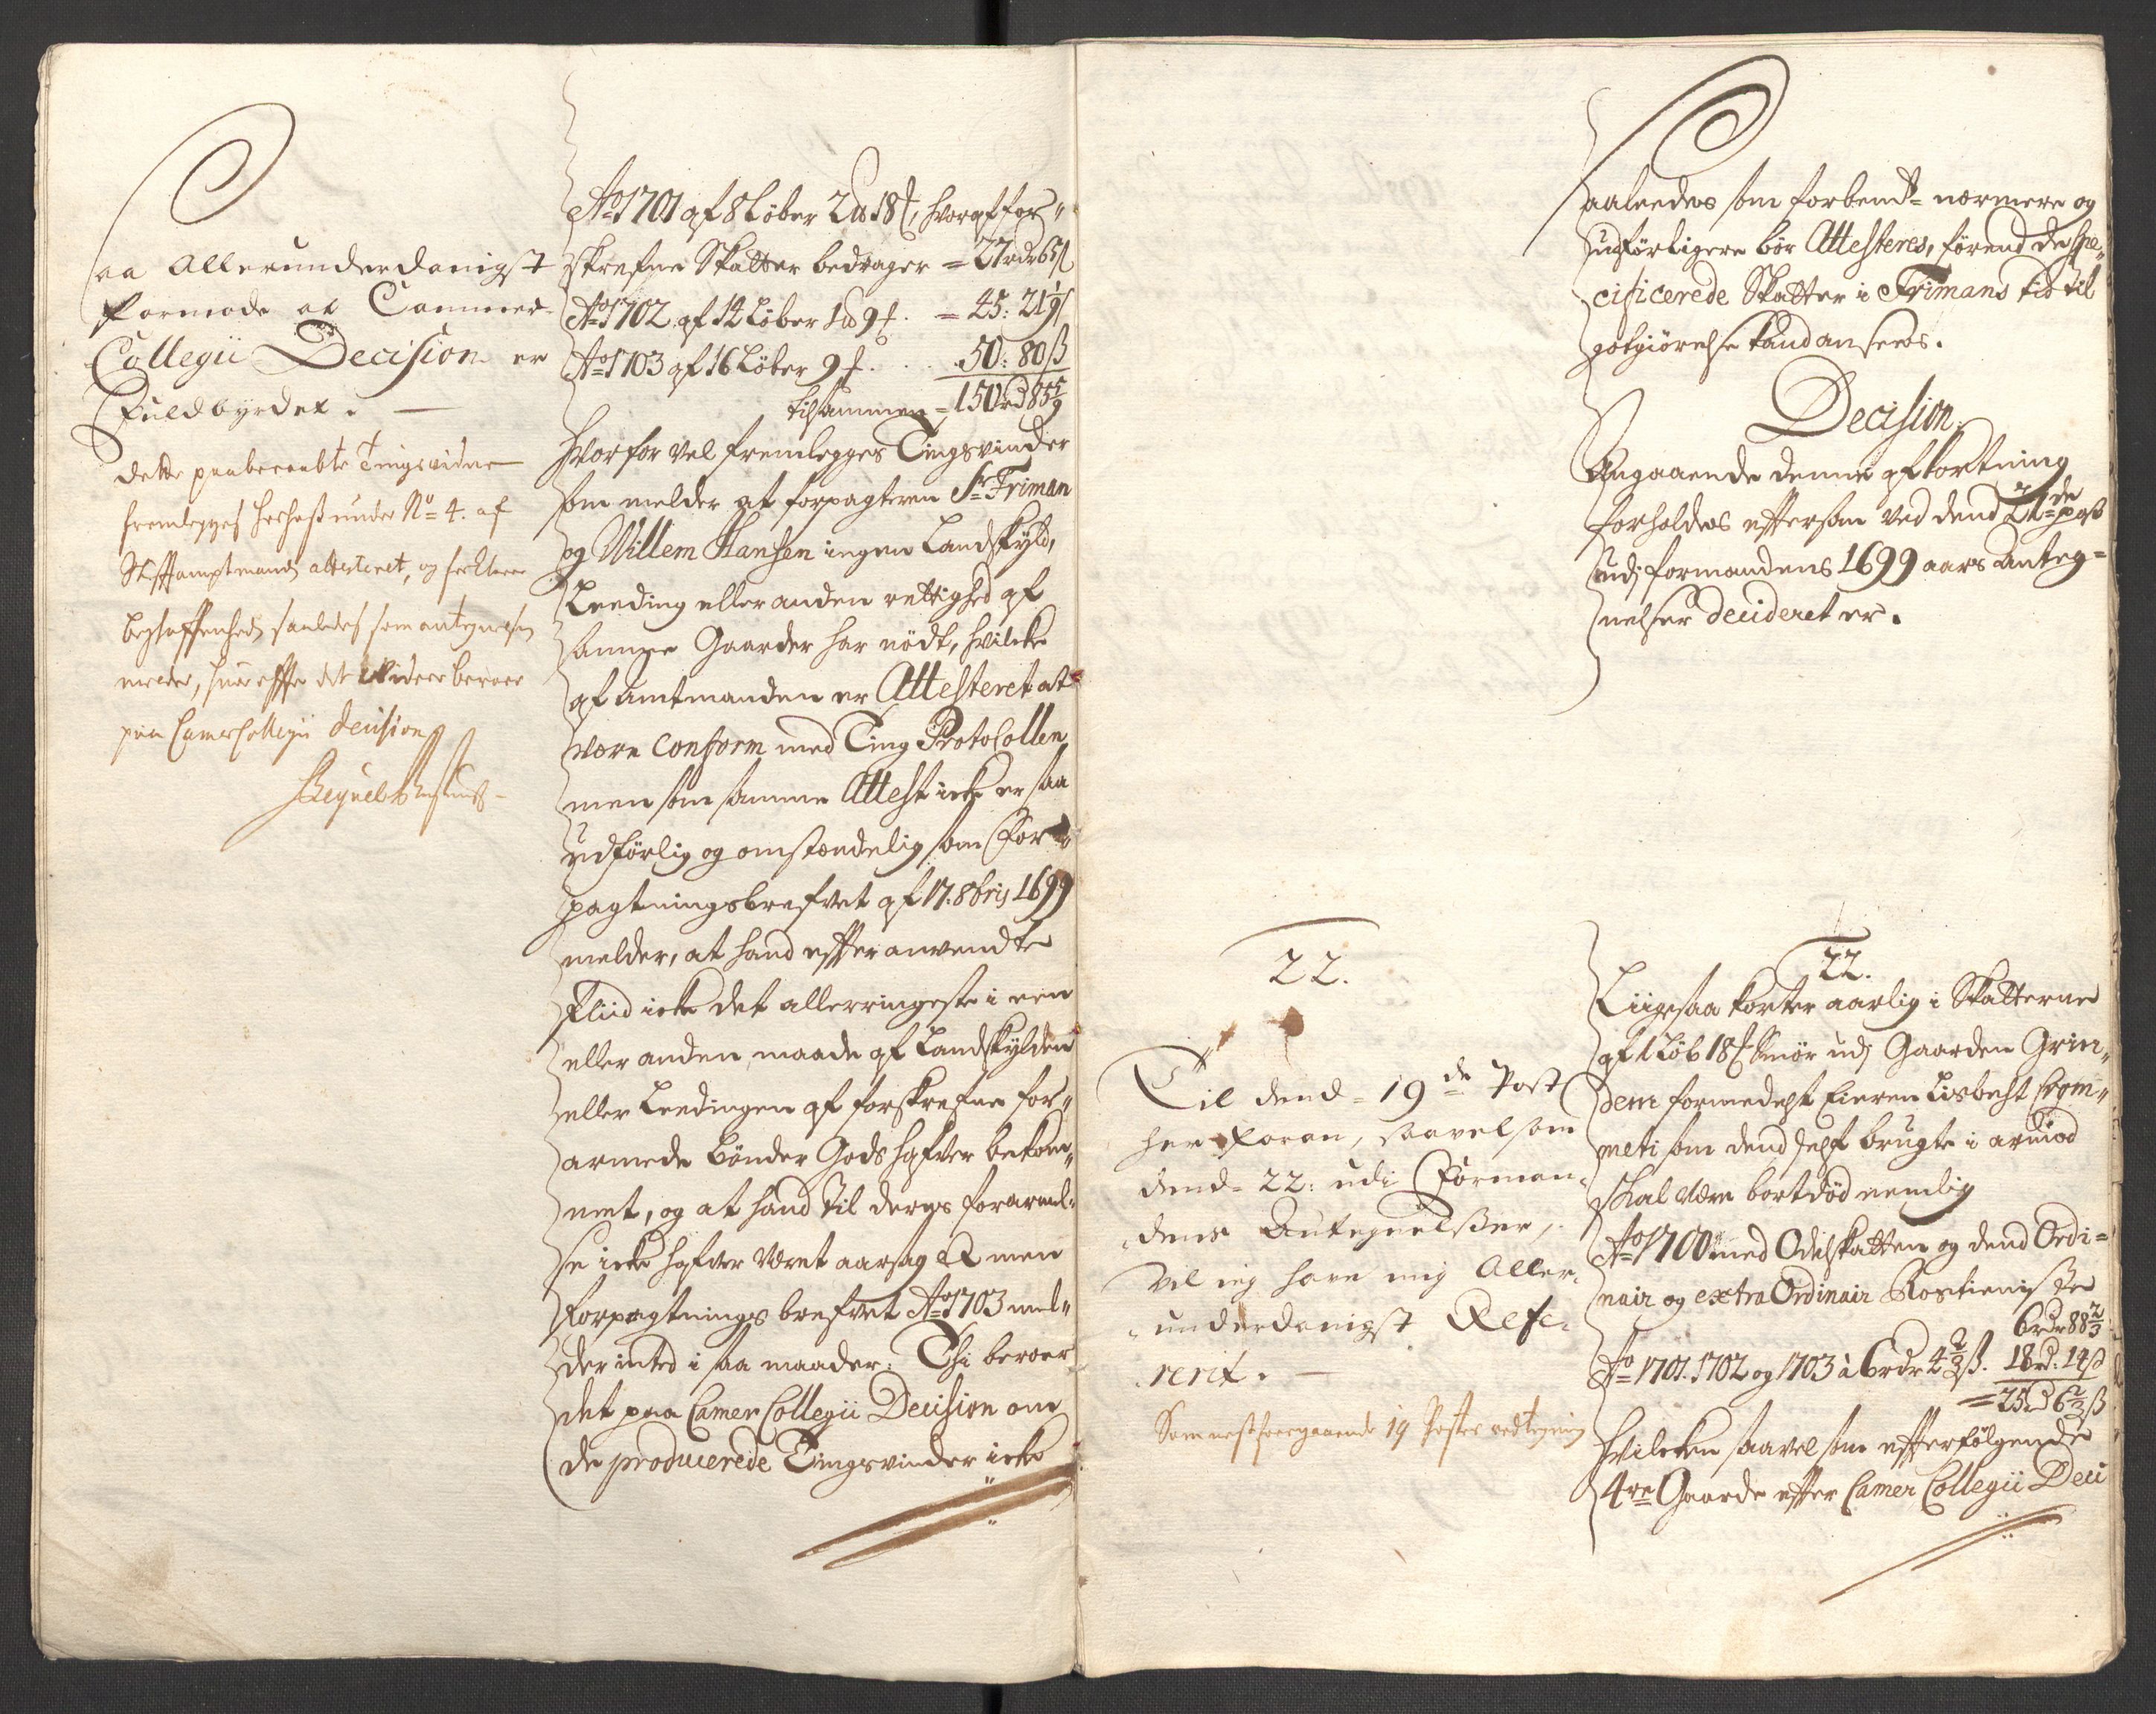 aa Allerunderdanigst
formode at Cammer
Collegii Decision er
Fuldbyrdet.
dette paaberaabte Tingsvidne
fremlegges herhos under No 4. af
Stiftamptmand attesteret, og forklarer
beschaffenhed saaledes som antegnelsen
melder, huor effter det widere beroer
paa Camer Collegii decision

Ao 1701 af 8 Løber 2 pd 18 f, hvoraf for„
skrefne Skatter bedrager = 27 rdr 65 ß
Ao 1702 af 14 Løber 1 pd 9 f. = 45: 21 1/9 ß
Ao 1703 af 16 Løber 9 f. . . 50: 80 ß
tilsammen = 150 rd 85 5/9
Hvorfor vel fremlegges Tingsvinder
som melder at forpagteren Sr Friman
og Willem Hansen ingen Landskyld,
Leeding eller anden rettighed af
samme Gaarder har nødt, hvilcke
af Amtmanden er Attesteret at
være conform med Ting Protocollen
men som samme Attest icke er saa
udførlig og omstændelig som For
pagtningsbrefvet af 17. 8bris 1699
melder, at hand effter anvendte
Fliid icke det allerringeste i een
eller anden maade af Landskylden
eller Leedingen af forskrefne for„
armede Bønder Gods hafver bekom„
met, og at hand til deres forarmel„
se icke hafver været aarsag etc men
Forpagtnings brefvet Ao 1703 mel„
der inted i saa maader: Thi beroer
det paa Camer Collegii Decision om
de producerede Tingsvinder icke

aaleedes som forbemt nærmere og
udførligere bør Attesteres, førend de spe„
cificerede Skatter i Frimans tid til
godgiørelse kand ansees.
Decision.
Angaaende denne afkortning
forholdes efftersom ved dend 21de post
udj formandens 1699 aars Anteg=
nelser decideret er.

22.
Til dend 19de Post
her foran, saavelsom
dend 22: udi Forman„
dens Antegnelsser,
vil ieg have mig Aller„
underdanigst Refe„
rerit.
Som nestforegaaende 19 Postes vedtegning

22.
Liigesaa korter aarlig i Skatterne
af 1 Løb 18 f Smør udj Gaarden Grin„
dem formedelst Eieren Lisbeht
meti som dend self brugte i armod
skal være bortdød nemlig
Ao 1700 med Odelskatten og dend Ordi=
nair og extra Ordinair Rostieniste
6 rdr 88 2/3
Ao 1701. 1702 og 1703 à 6 rdr 4 2/3 ß. 18 rd: 14 ß
= 25 rd 6 2/3 ß
Hvilcken saavelsom effterfølgende
4re Gaarde effter Camer Collegii Deci